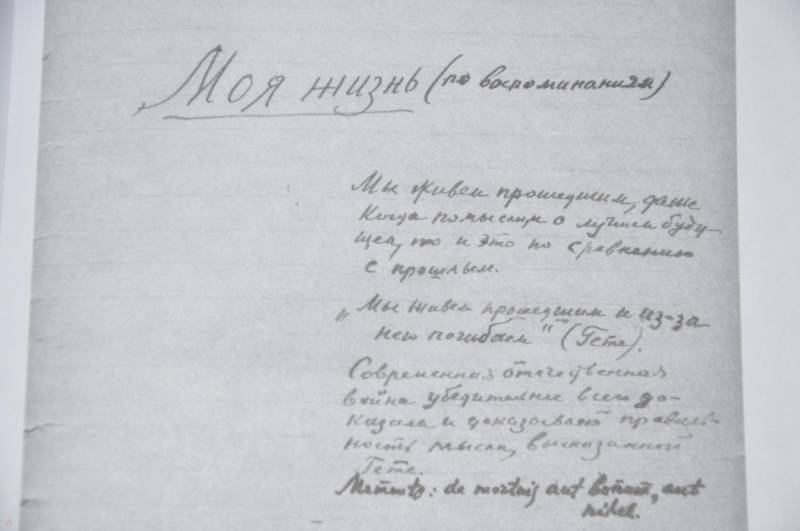 Моя жизнь (по воспоминаниям)
Мы живем прошедшим, даже
когда помыслим о лучшем буду-
щем, то и это по сравнению
с прошлым.
„Мы живем прошедшим и из-за
него погибаем" (Гете).
Современная отечественная
война убедительнее всего до-
казала и доказывает правиль-
ность мысли, высказанной
Гете.
Memento: de mortuis aut bonum, aut
nihil.